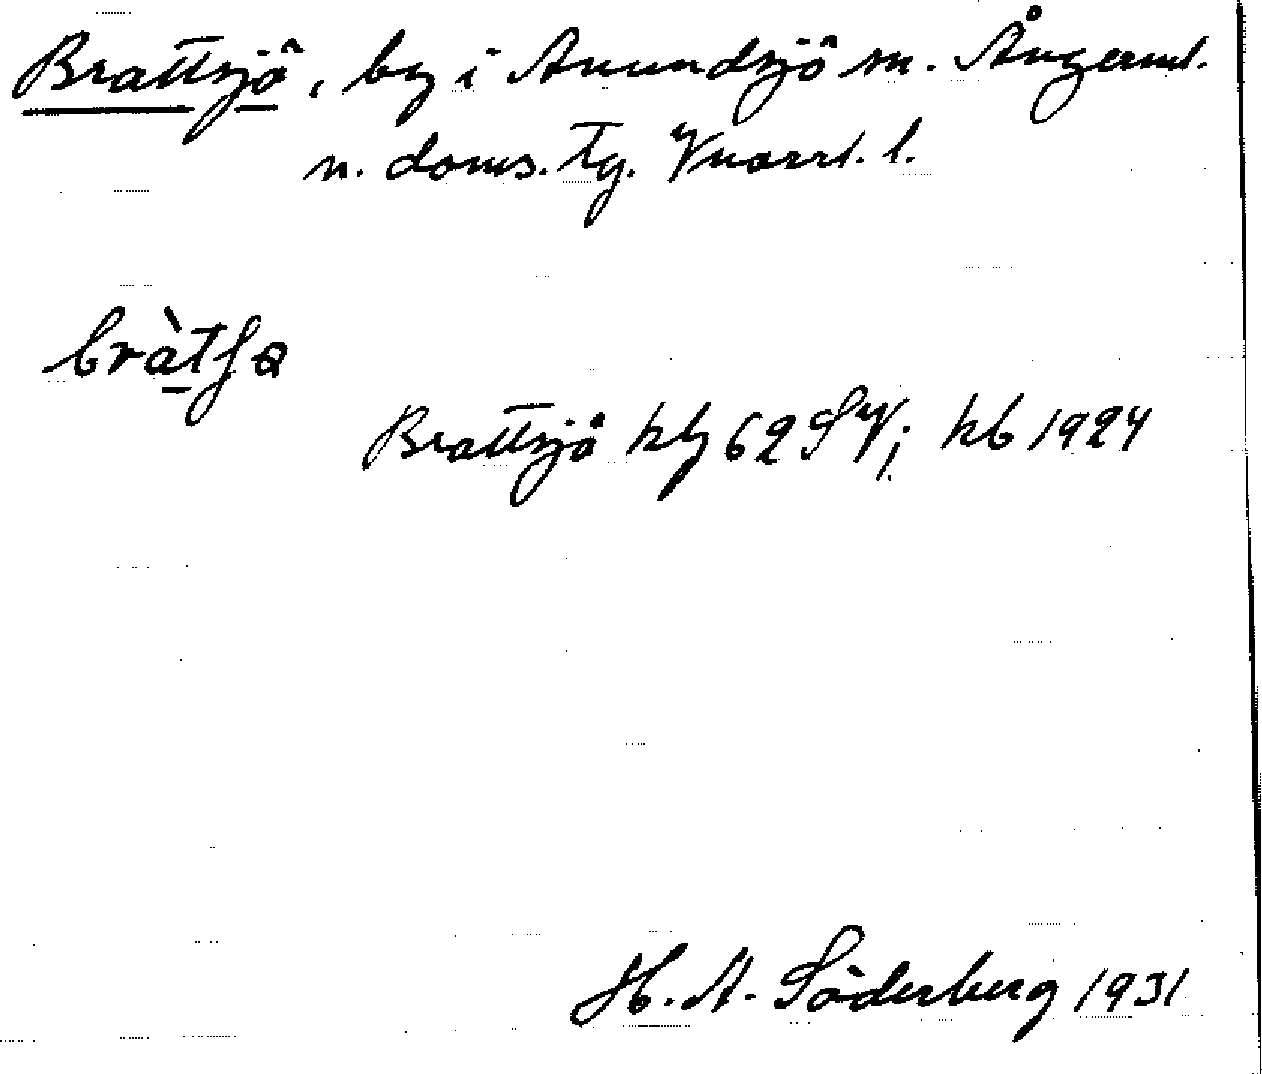 Brattsjö, by i Anundsjö sn. Ångerml.
n. doms. tg. Vnorrl. l.
bràtʃɵ
Brattsjö kbl 62 SV; kb 1924
H. A. Söderberg 1931